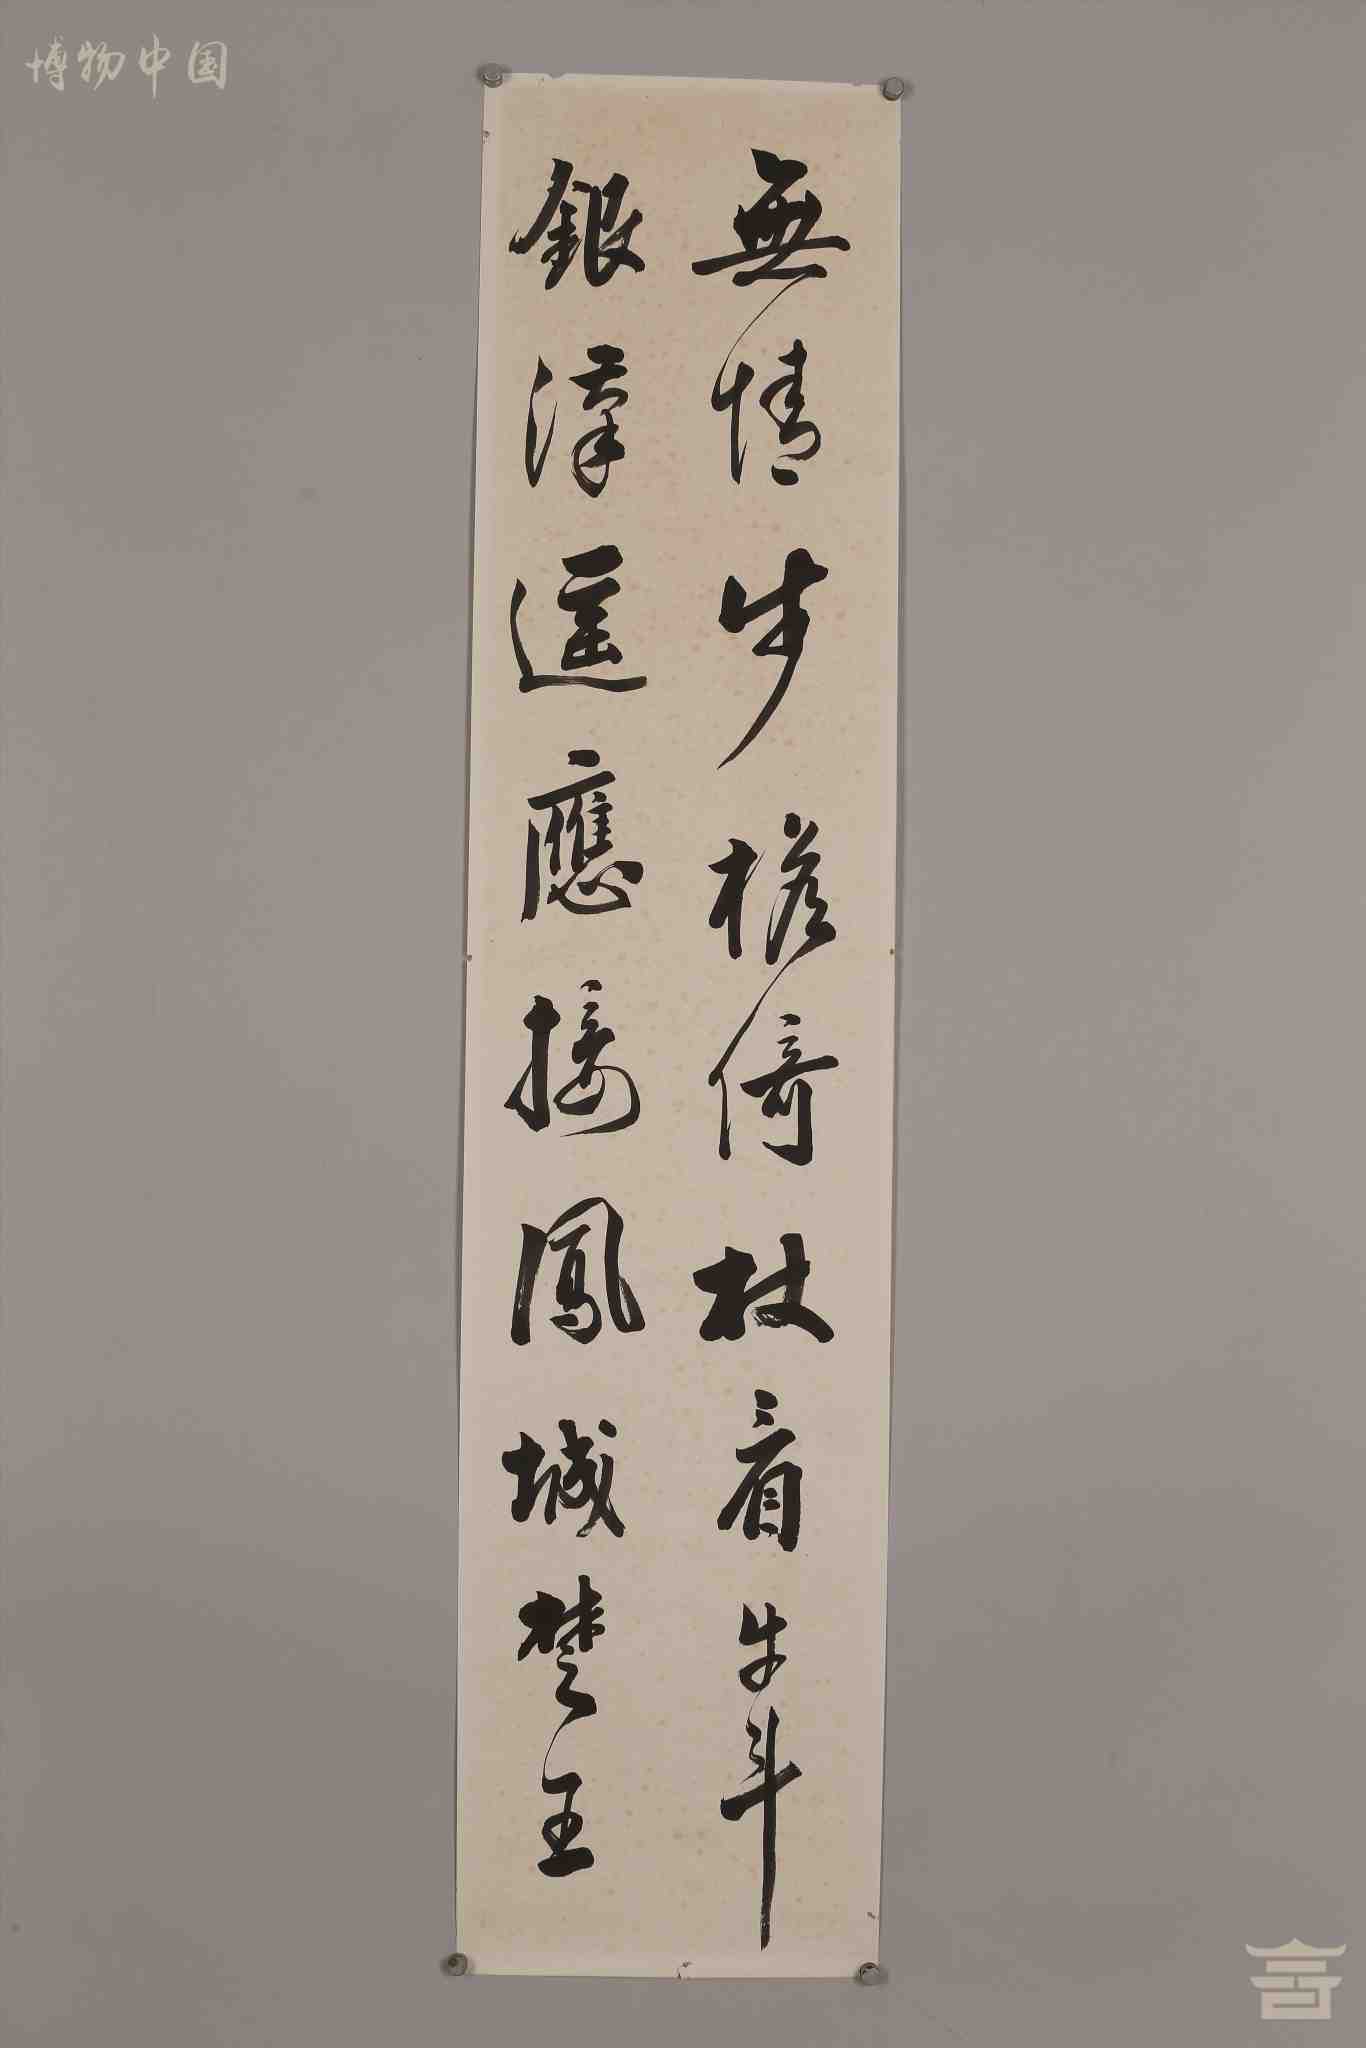 博物中国
無情步檐倚杖看牛斗
銀漢遥應接鳳城楚王